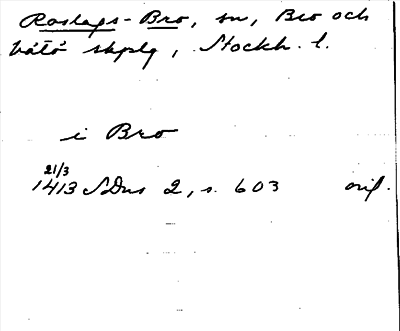 Roslags-Bro, sn, Bro och
Vätö skplg, Stockh. l.
i Bro
21/3
1413 SDns 2, s. 603 orig.